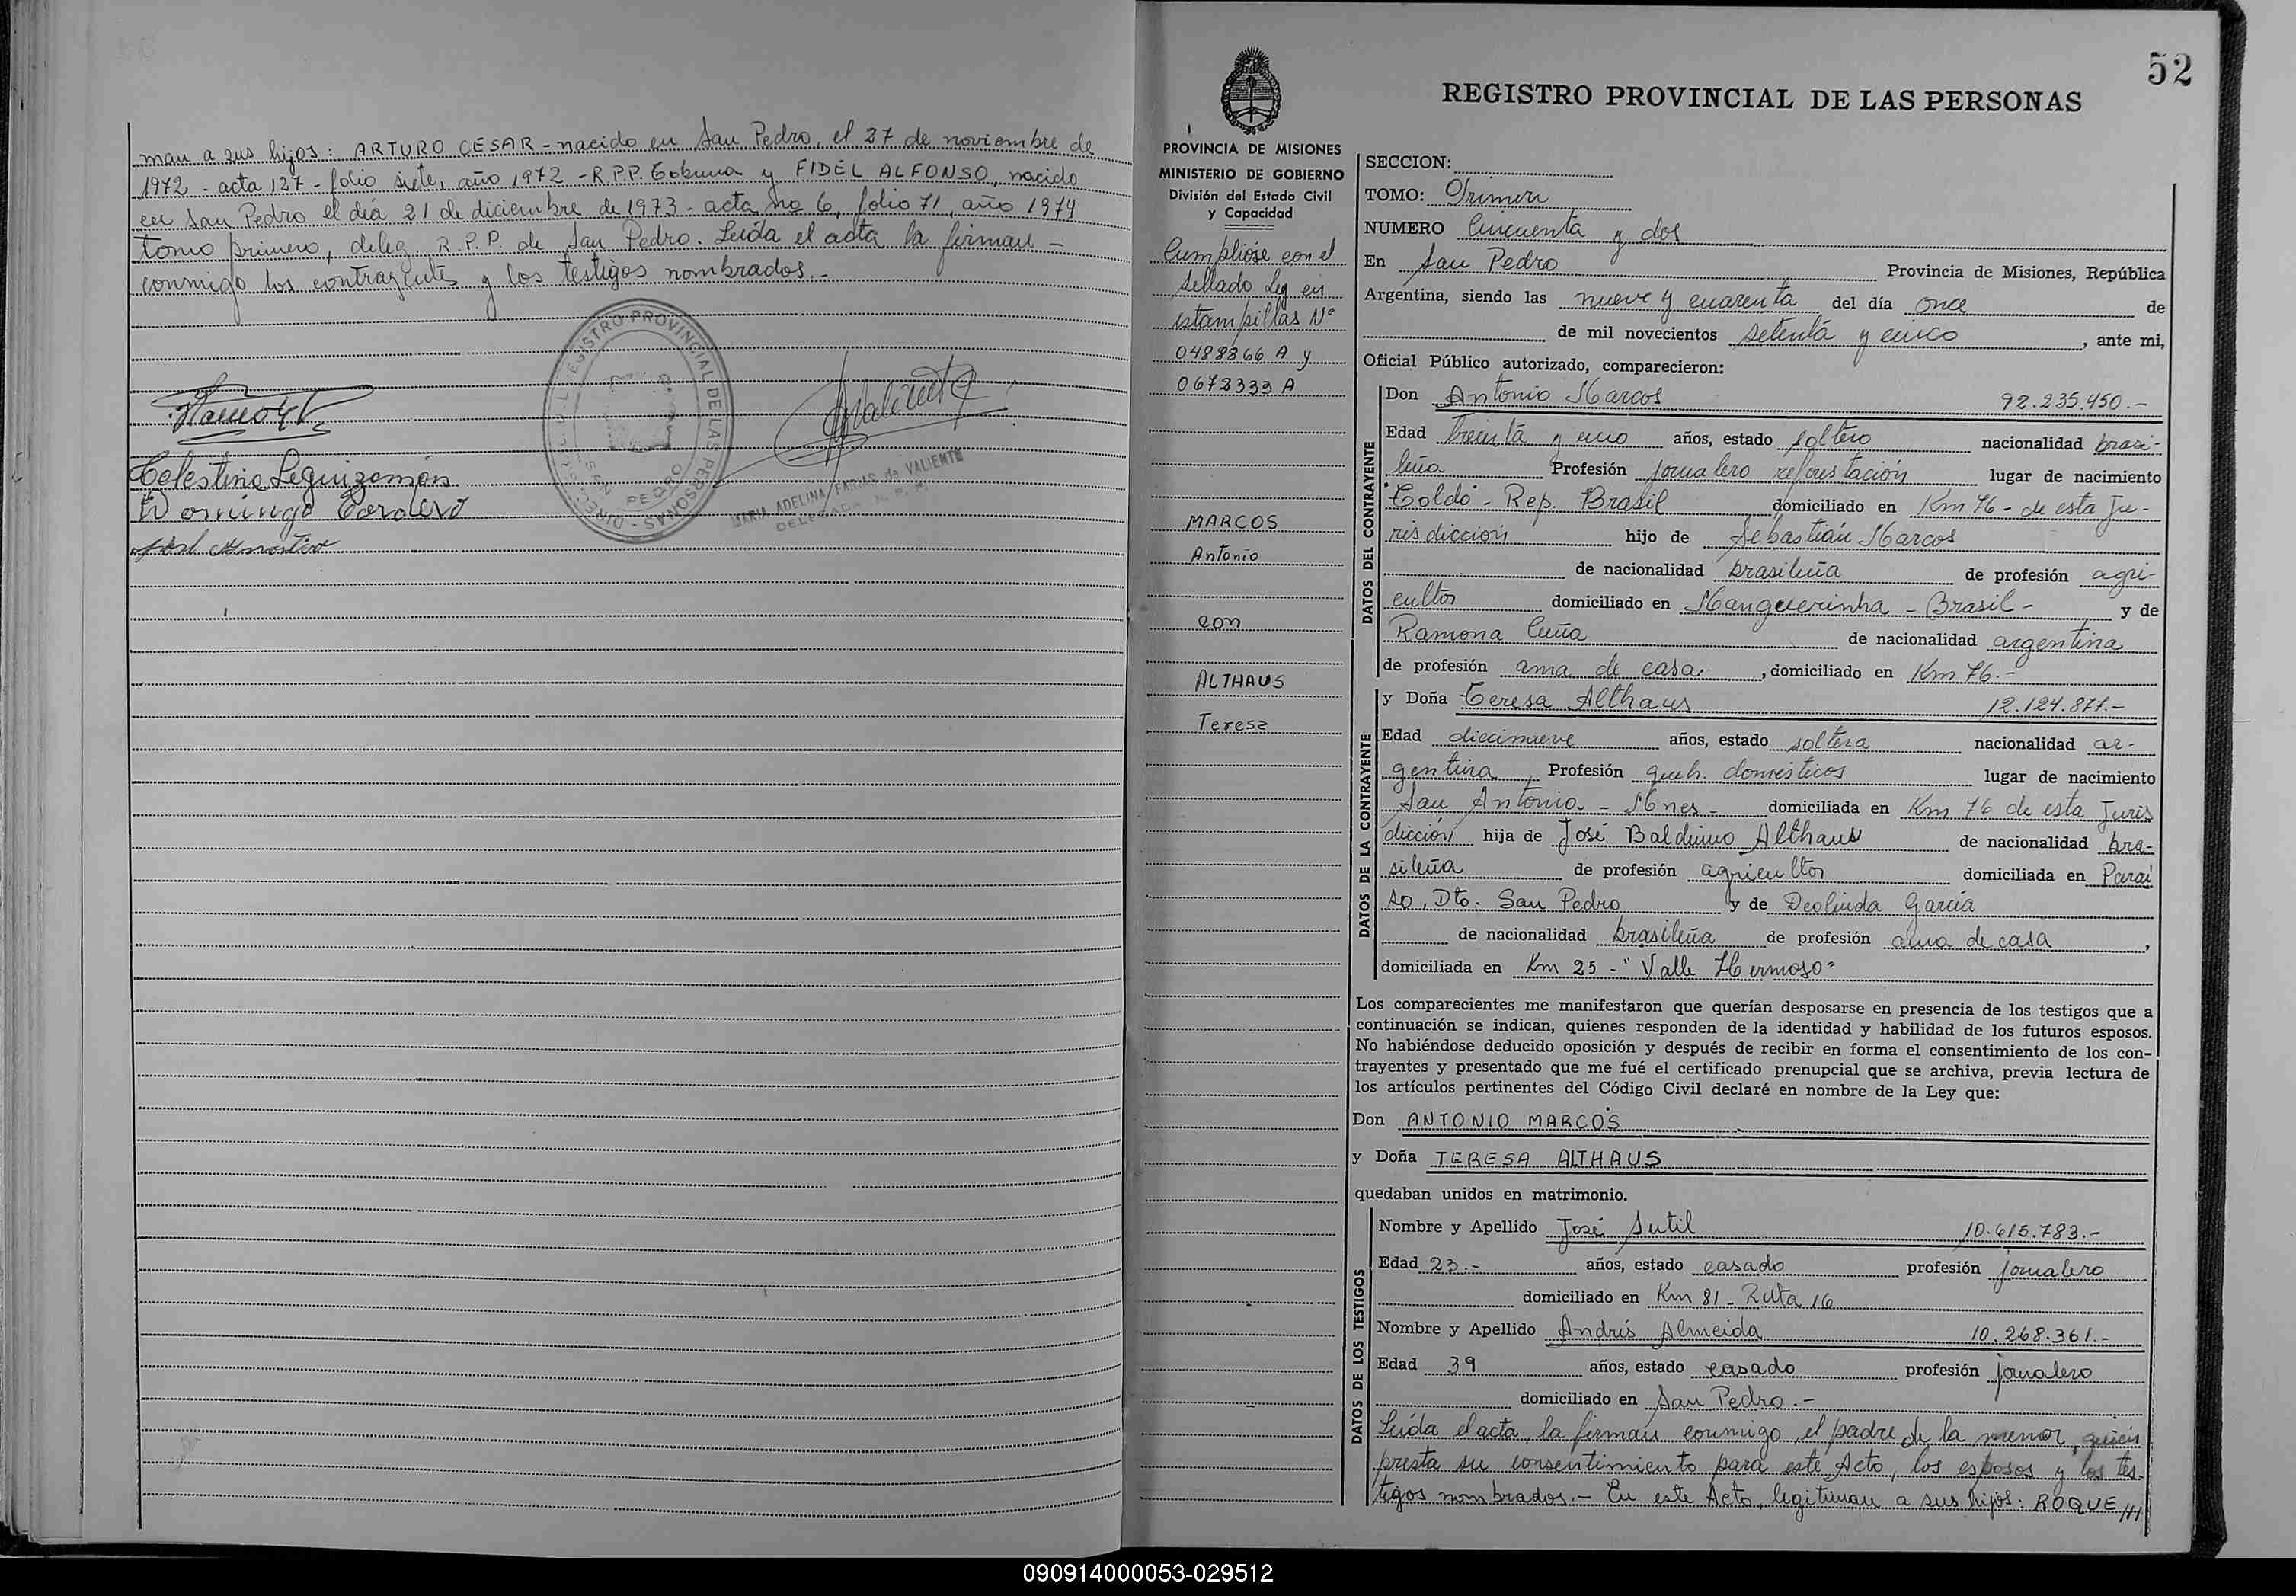 man a sus hijos: ARTURO CESAR - nacido en San Pedro, el 27 de noviembre de
1972 - acta 127 - folio siete, año 1972 - R.P.P. Tobuna y FIDEL ALFONSO, nacido
en San Pedro el día 21 de diciembre de 1973 - acta no 6, folio 71, año 1974
tomo primero, deleg. R.P.P. de San Pedro. Leída el acta la firman -
conmigo los contrayentes y los testigos nombrados.-
REGISTRO PROVINCIAL DE LAS PERSONAS
SAN PEDRO
Celestino Leguizamón
Domingo Cordero
MARIA ADELINA FARIAS de VALIENTE
DELEGADA R. P. P.
52
REGISTRO PROVINCIAL DE LAS PERSONAS
PROVINCIA DE MISIONES
MINISTERIO DE GOBIERNO
División del Estado Civil
y Capacidad
Cumplióse con el
sellado Leg en
estampillas Nº
0488366 A y
0673333 A
MARCOS
Antonio
con
ALTHAUS
Teresa
SECCION:
TOMO: Primero
NUMERO Cincuenta y dos
En San Pedro Provincia de Misiones, República
Argentina, siendo las nueve y cuarenta del día once de
de mil novecientos setenta y cinco, ante mi,
Oficial Público autorizado, comparecieron:
DATOS DEL CONTRAYENTE
Don Antonio Marcos 92.235.450.-
Edad treinta y uno años, estado soltero nacionalidad brasi-
leña Profesión jornalero reforestación lugar de nacimiento
"Toldo" - Rep. Brasil domiciliado en Km 76 - de esta Ju-
risdicción hijo de Sebastián Marcos
de nacionalidad brasileña de profesión agri-
cultor domiciliado en Mangueirinha - Brasil - y de
Ramona de nacionalidad argentina
de profesión ama de casa, domiciliado en Km 76.-
DATOS DE LA CONTRAYENTE
y Doña Teresa Althaus 12.124.877.-
Edad diecinueve años, estado soltera nacionalidad ar-
gentina, Profesión queh. domésticos lugar de nacimiento
San Antonio - Mnes - domiciliada en Km 76 de esta Juris
dicción hija de José Balduino Althaus de nacionalidad bra-
sileña de profesión agricultor domiciliada en Parai
so, Dto. San Pedro y de Deolinda García
de nacionalidad brasileña de profesión ama de casa,
domiciliada en Km 25 - "Valle Hermoso"
Los comparecientes me manifestaron que querían desposarse en presencia de los testigos que a
continuación se indican, quienes responden de la identidad y habilidad de los futuros esposos.
No habiéndose deducido oposición y después de recibir en forma el consentimiento de los con-
trayentes y presentado que me fué el certificado prenupcial que se archiva, previa lectura de
los artículos pertinentes del Código Civil declaré en nombre de la Ley que:
Don ANTONIO MARCOS
y Doña TERESA ALTHAUS
quedaban unidos en matrimonio.
DATOS DE LOS TESTIGOS
Nombre y Apellido José Sutil 10.615.783.-
Edad 23.- años, estado casado profesión jornalero
domiciliado en Km 81 - Ruta 16
Nombre y Apellido Andrés Almeida 10.268.361.-
Edad 39 años, estado casado profesión jornalero
domiciliado en San Pedro.-
Leída el acta, la firman conmigo, el padre de la menor, quien
presta su consentimiento para este Acto, los esposos y los tes-
tigos nombrados.- En este Acto, legitiman a sus hijos: ROQUE ///
090914000053-029512